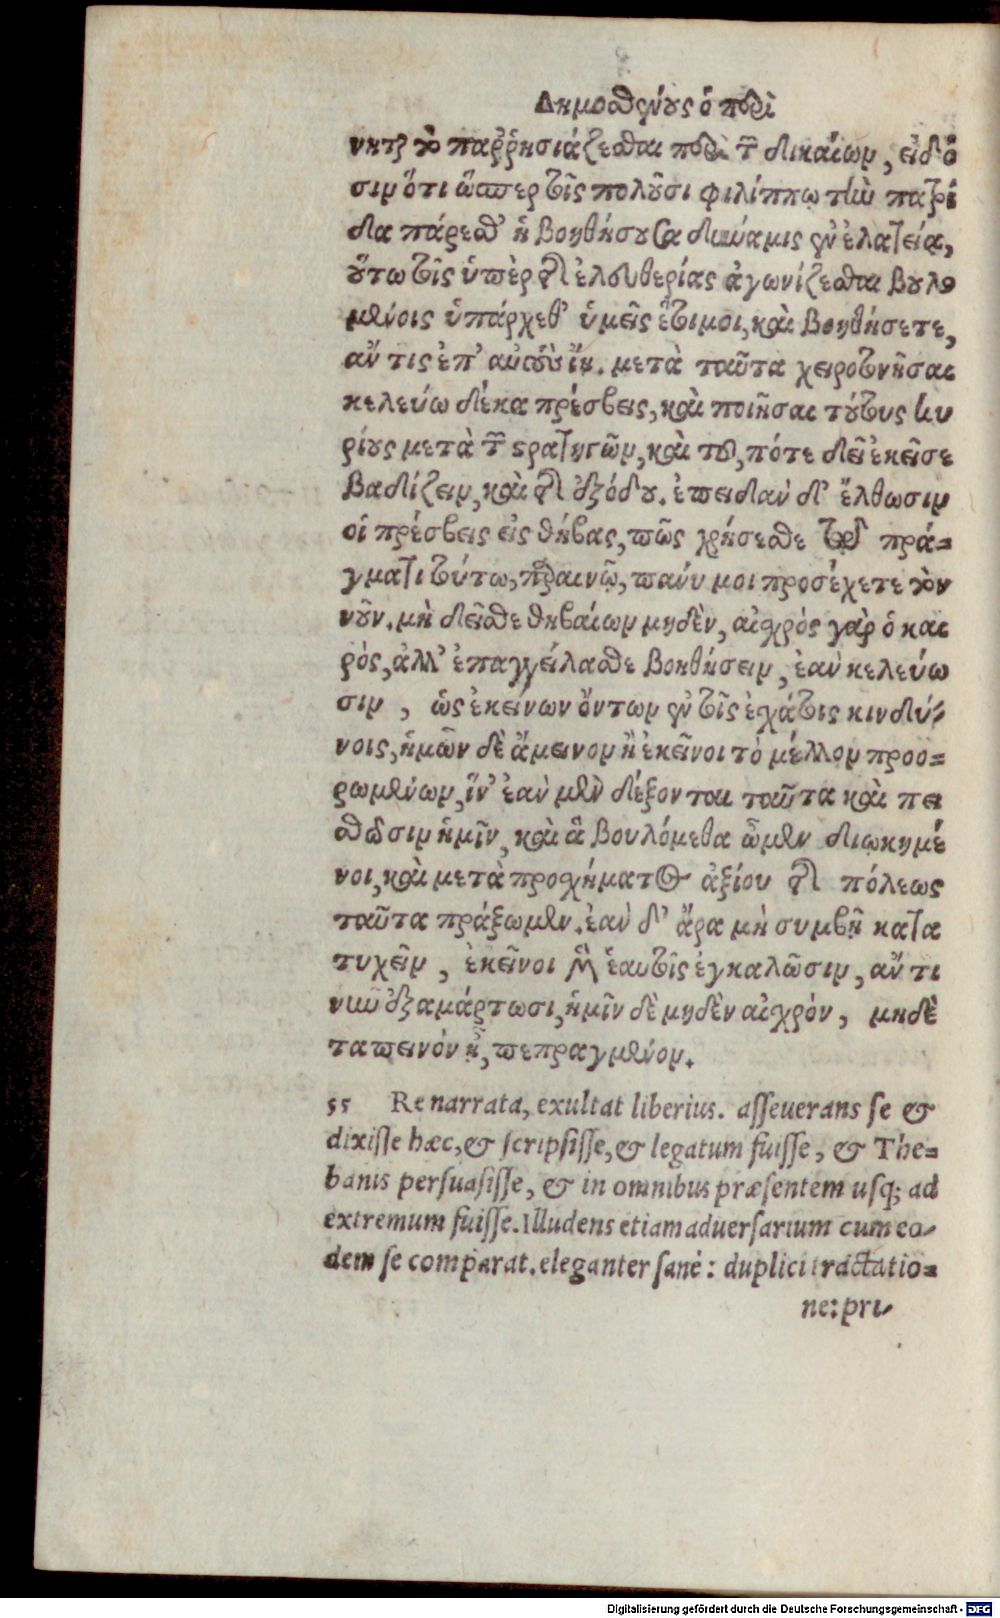 Δημοσθένους ὁ περὶ
νηται τὸ παῤῥησιάζεσθαι περὶ τῶν δικαίων, εἰδό
σιν ὅτι ὥσπερ τοῖς πωλοῦσι φιλίππῳ τὴν πατρί
δα πάρεσθ’ ἡ βοηθήσουσα δύναμις ἐν ἐλατείᾳ,
οὕτω τοῖς ὑπὲρ τῆς ἐλευθερίας ἀγωνίζεσθαι βουλο
μένοις ὑπάρχεθ’ ὑμεῖς ἕτοιμοι, καὶ βοηθήσετε,
ἄν τις ἐπ’ αὐτοὺς ἴῃ. μετὰ ταῦτα χειροτονῆσαι
κελεύω δέκα πρέσβεις, καὶ ποιῆσαι τούτους κυ
ρίους μετὰ τῶν στρατηγῶν, καὶ τοῦ, πότε δεῖ ἐκεῖσε
βαδίζειν, καὶ τῆς ἐξόδου. ἐπειδὰν δ’ ἔλθωσιν
οἱ πρέσβεις εἰς θήβας, πῶς χρήσεσθε τῷ πρά=
γματι τούτῳ, παραινῶ, πάνυ μοι προσέχετε τὸν
νοῦν. μὴ δεῖσθε θηβαίων μηδὲν, αἰσχρὸς γὰρ ὁ και
ρὸς, ἀλλ’ ἐπαγγείλασθε βοηθήσειν, ἐὰν κελεύω
σιν, ὡς ἐκείνων ὄντων ἐν τοῖς ἐσχάτοις κινδύ-
νοις, ἡμῶν δὲ ἄμεινον ἢ ἐκεῖνοι τὸ μέλλον προο=
ρωμένων, ἵν’ ἐὰν μὲν δέξονται ταῦτα καὶ πει
σθῶσιν ἡμῖν, καὶ ἃ βουλόμεθα ὦμεν διῳκημέ
νοι, καὶ μετὰ προσχήματος ἀξίου τῆς πόλεως
ταῦτα πράξωμεν. ἐὰν δ’ ἄρα μὴ συμβῇ κατα
τυχεῖν, ἐκεῖνοι μὲν ἑαυτοῖς ἐγκαλῶσιν, ἄν τι
νῦν ἐξαμάρτωσι, ἡμῖν δὲ μηδὲν αἰσχρὸν, μηδὲ
ταπεινὸν ᾖ, πεπραγμένον.
55 Re narrata, exultat liberius. asseuerans se &
dixisse hæc, & scripsisse, & legatum fuisse, & The=
banis persuasisse, & in omnibus præsentem usq; ad
extremum fuisse. Illudens etiam aduersarium cum eo-
dem se comparat. eleganter sanè: duplici tractatio=
ne: pri-
Digitalisierung gefördert durch die Deutsche Forschungsgemeinschaft - DFG